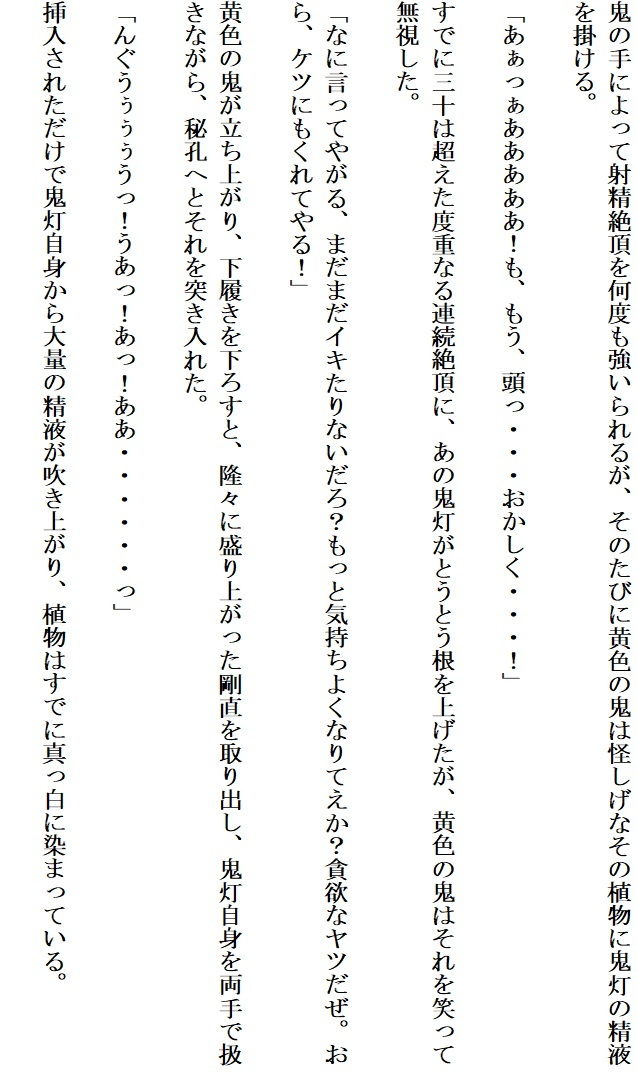 鬼の手によって射精絶頂を何度も強いられるが、そのたびに黄色の鬼は怪しげなその植物に鬼灯の精液
を掛ける。
「あぁっぁあああああ！も、もう、頭っ・・・おかしく・・・！」
すでに三十は超えた度重なる連続絶頂に、あの鬼灯がとうとう根を上げたが、黄色の鬼はそれを笑って
無視した。
「なに言ってやがる、まだまだイキたりないだろ？もっと気持ちよくなりてえか？貪欲なヤツだぜ。お
ら、ケツにもくれてやる！」
黄色の鬼が立ち上がり、下履きを下ろすと、隆々に盛り上がった剛直を取り出し、鬼灯自身を両手で扱
きながら、秘孔へとそれを突き入れた。
「んぐうぅぅぅうっ！うあっ！あっ！ああ・・・・・・っ」
挿入されただけで鬼灯自身から大量の精液が吹き上がり、植物はすでに真っ白に染まっている。